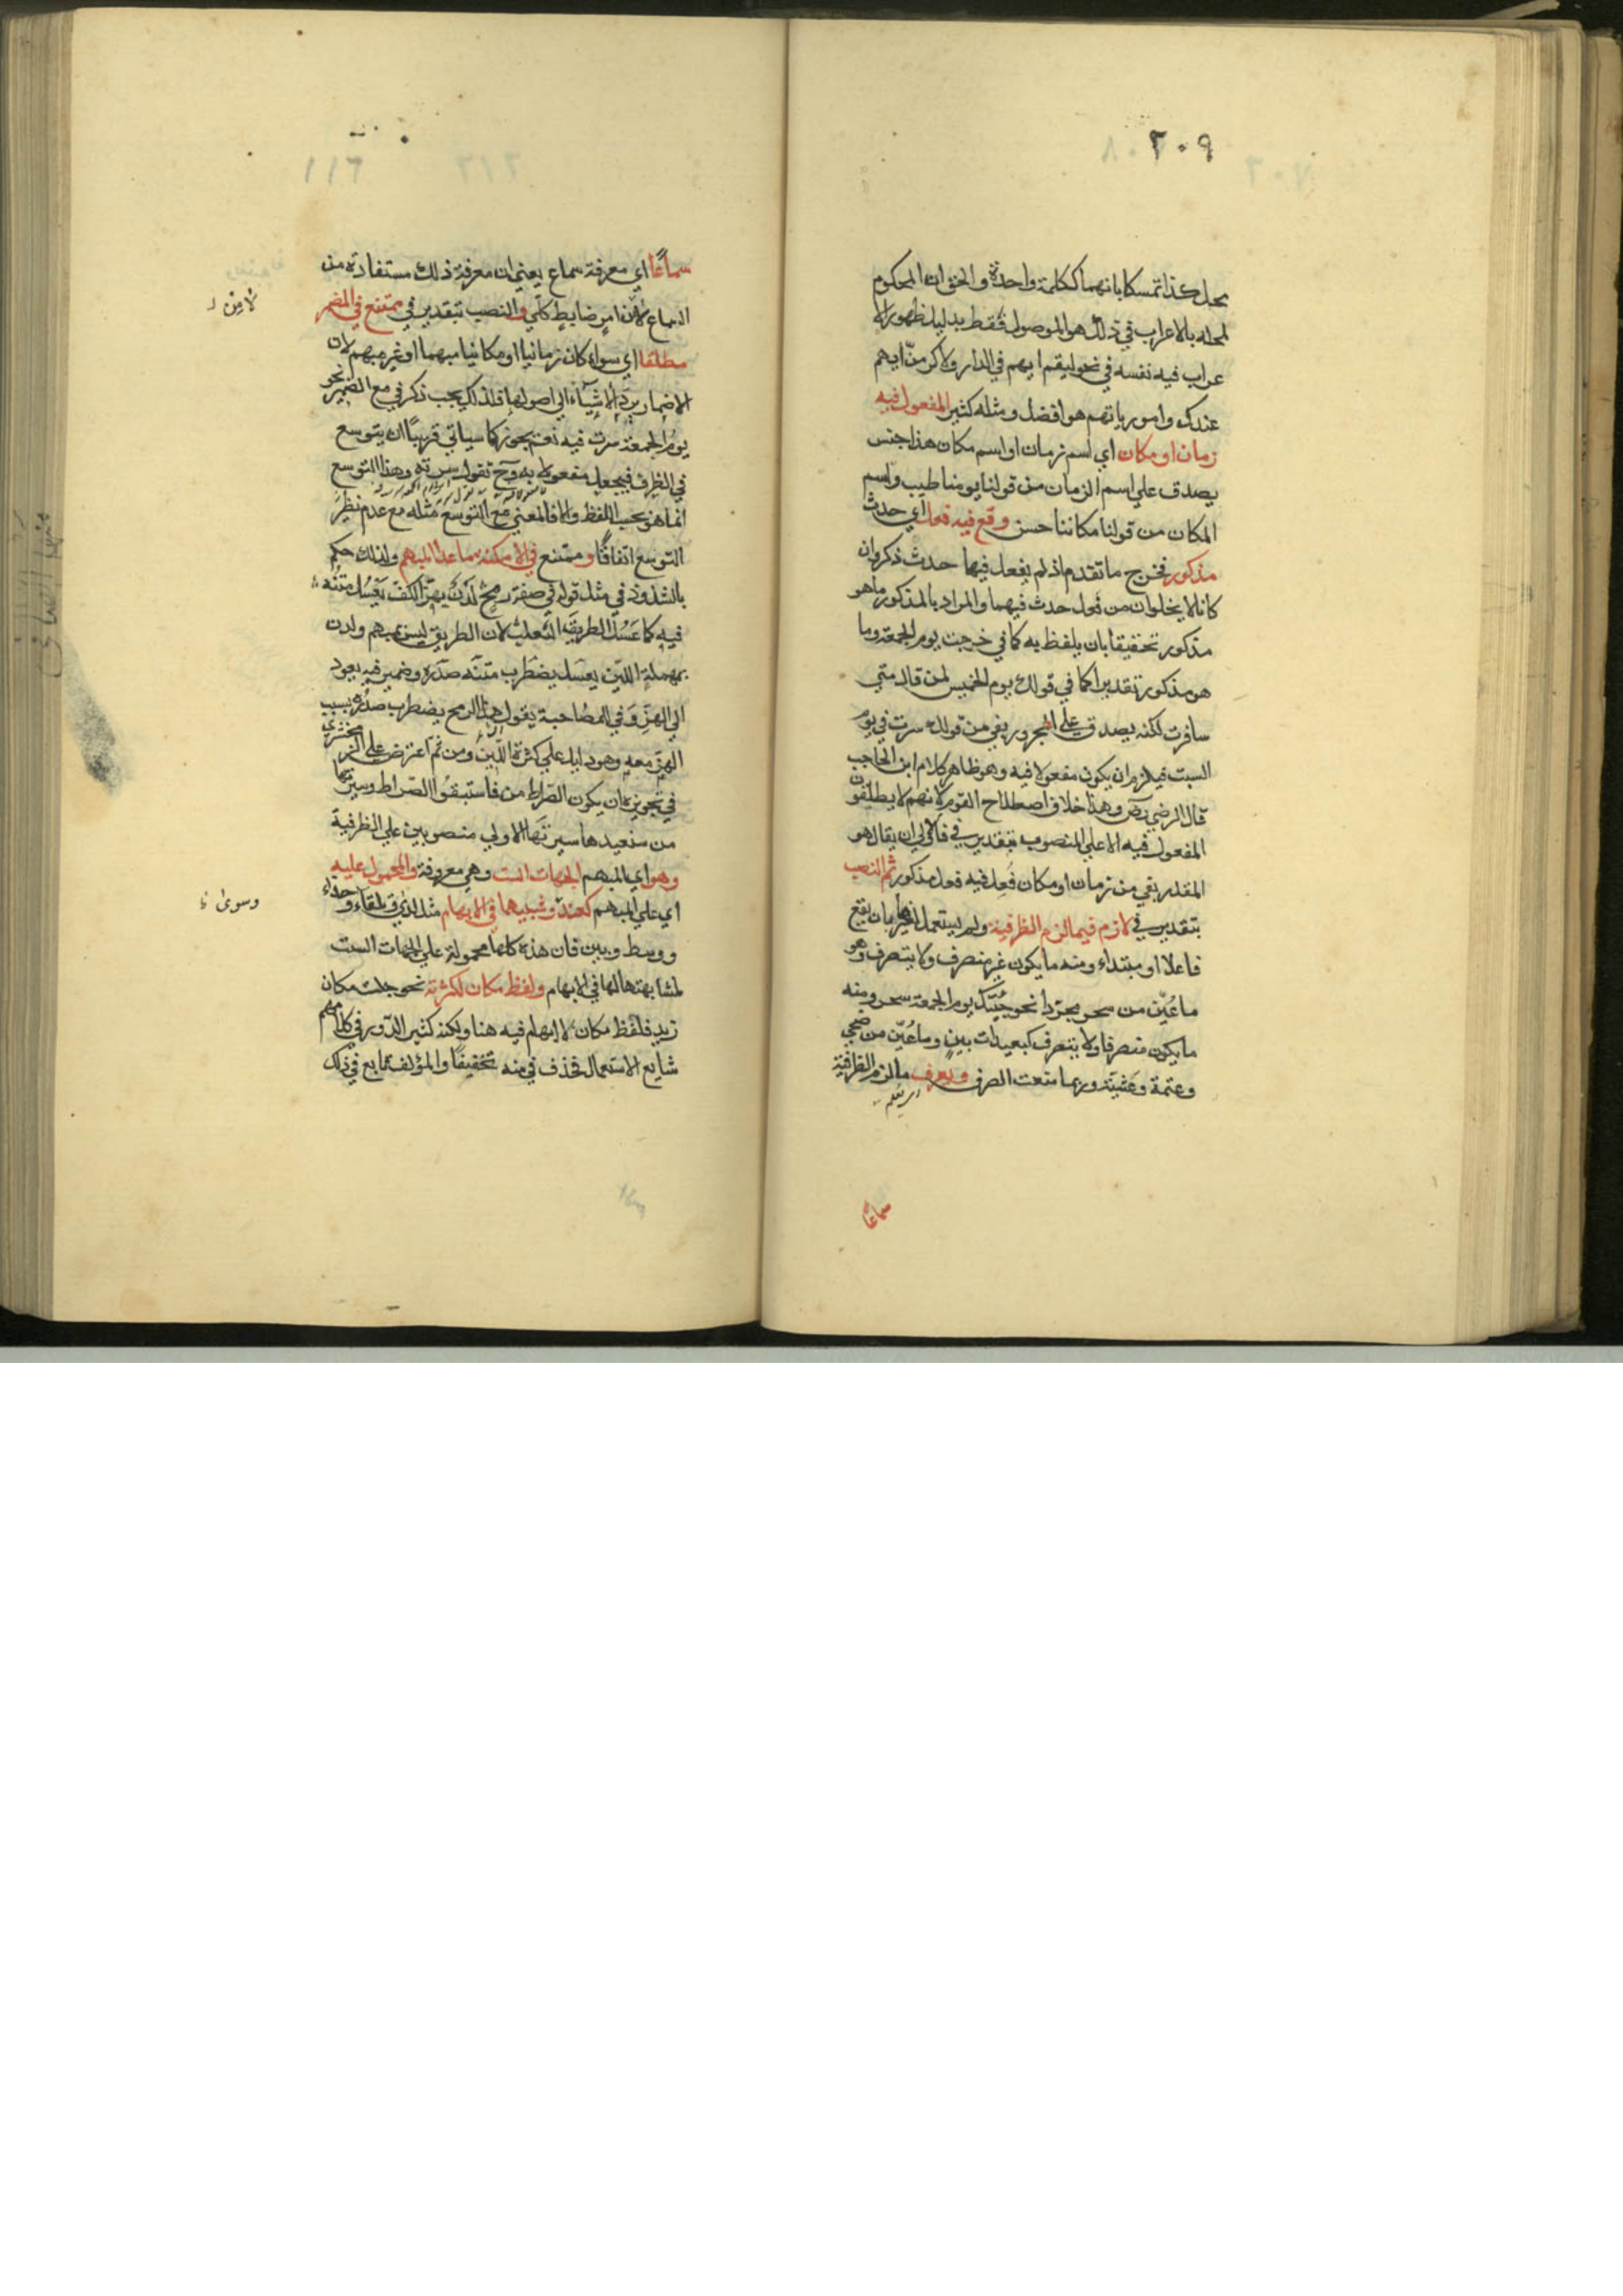 ٢٠٩
محل كذا تمسكا بانهما ككلمة واحدة والحق ان المحكوم
لمحله بالاعراب في ذلك هو الموصول فقط بدليل ظهور الا
عراب فيه نفسه في نحو ليقم ايهم في الدار ولاكرمنّ ايهم
عندك وامورر بايهم هو افضل ومثله كثير المفعول فيه
زمان او مكان اي اسم زمان او اسم مكان هذا جنس
يصدق علي اسم الزمان من قولنا يومنا طيب واسم
المكان من قولنا مكاننا حسن وقع فيه فعل اي حدث
مذكور فخرج ما تقدم اذ لم يفعل فيها حدث ذكر وان
كانا لا يخلوان من فعل حدث فيهما والمراد بالمذكور ما هو
مذكور تحقيقا بان يلفظ به كما في خرجت يوم الجمعة وما
هو مذكور تقديرا كما في قولك يوم الخميس لمن قال متي
سافرت لكنه يصدق علي المجرور بفي من قولك سرت في يوم
السبت فيلزم ان يكون مفعولا فيه وهو ظاهر كلام ابن الحاجب
قال الرضي رضي وهذا خلاف اصطلاح القوم لانهم لا يطلقون
المفعول فيه الا علي المنصوب بتقدير في فالاولي ان يقال هو
المقدر بفي من زمان او مكان فُعِل فيه فعل مذكور ثم النصب
بتقدير في لازم فيما لزم الظرفية ولم يستعمل لغيرها بان يقع
فاعلا او مبتداء ومنه ما يكون غير منصرف ولا يتصرف وهو
ما عُيّن من سحر مجردا نحو جئتك يوم الجمعة سحر ومنه
ما يكون منصرفا ولا يتصرف كبعيدات بين وما عُيّن من ضحي
وعتمة وعشيّة وربما منعت الصرف ويعرف ما لزم الظرفية
اي يعلم
سماعًا
سماعًا اي معرفة سماع يعني ان معرفة ذلك مستفادة من
السماع لا من امرٍ ضابطٍ كلّي والنصب بتقدير في ممتنع في المضمر
لا مِن
مطلقا اي سواء كان زمانيا او مكانيا مبهما او غير مبهم لان
الاضمار يردّ الاشيآء الي اصولها فلذلك يجب ذكر في مع الضمير نحو
يومُ الجمعة سرت فيه نعم يجوز كما سياتي قريبًا ان يتوسع
في الظرف فيجعل مفعولا به وح تقول سرته وهذا التوسع
انما هو بحسب اللفظ والا فالمعني مع التوسع مثله مع عدم نظيرَ
التوسع اتفاقًا وممتنع في الامكنة ما عدا المبهم ولذلك حكم
بالشذوذ في مثل قوله في صفة رمح لَدْنٌ بهزّ الكفّ يَعْسِلُ متنُه
فيه كما عَسَل الطريقَ الثعلبُ لان الطريق ليس بمبهم ولدن
بمهملة اللّين يعسل يضطرب متنه صدره وضمير فيه يعود
الي الهزّ وفي المصاحبة يقول هذا الرمح يضطرب صدره بسبب
الهز معه وهو دليل علي كثرة اللّين ومن ثم اعترض علي الزمخشري
في تجويزه ان يكون الصراط من فاستبقوا الصّراط وسيرتها
من سنعيدها سيرتَها الاولي منصوبين علي الظرفية
وهو اي المبهم الجهات الست وهي معروفة والمحمول عليه
اي علي المبهم كعند وشبيهها في الابهام مثل لدي وتلقاء وحذاء
وسوي
ووسط وبين فان هذه كلها محمولة علي الجهات الست
لمشابهتها لها في الابهام ولفظ مكان لكثرته نحو جلست مكان
زيد فلفظ مكان لا ابهام فيه هنا ولكنه كثير الدّور في كلامهم
شايع الاستعمال فحذف في منه تخفيفًا والمؤلف تابع في ذلك